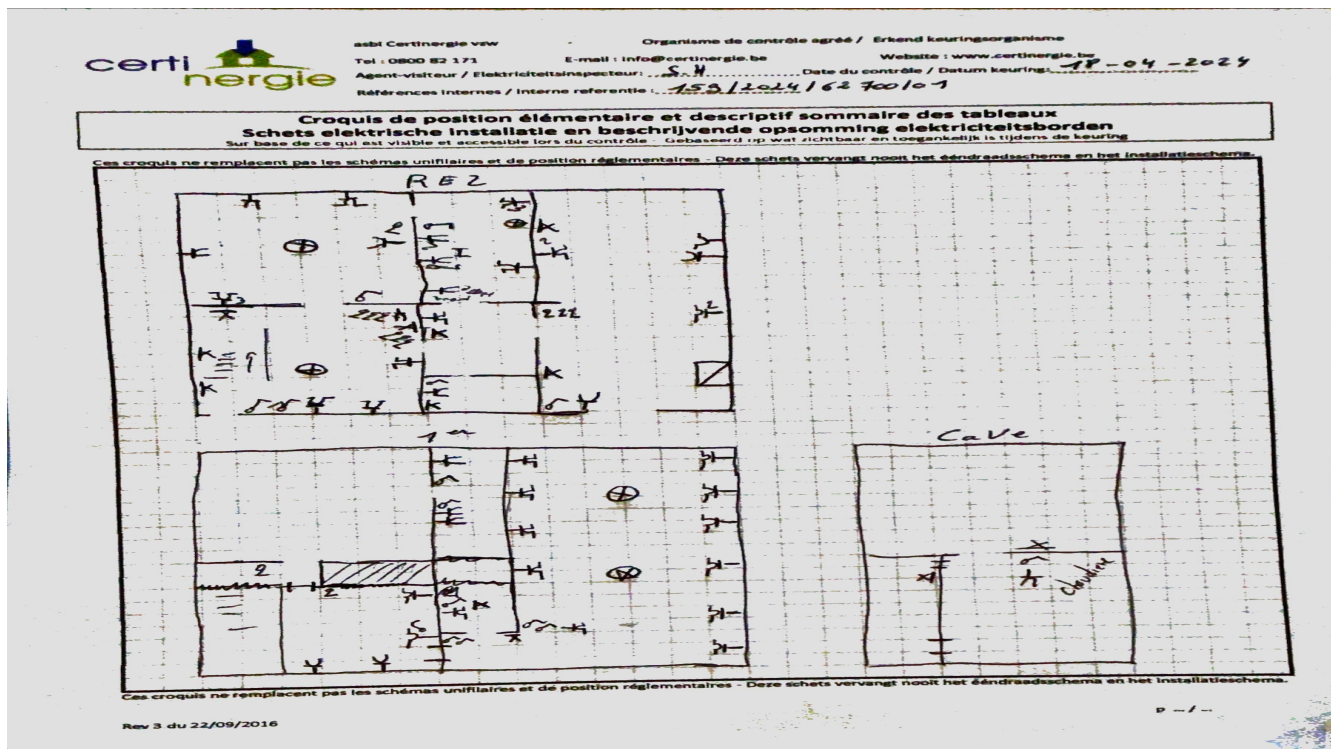 certi
nergie
asbl Certinergie vzw - Organisme de contrôle agréé / Erkend keuringsorganisme
Tel : 0800 82 171 E-mail : info@certinergie.be Website : www.certinergie.be
Agent-visiteur / Elektriciteitsinspecteur: S.H Date du contrôle / Datum keuring: 18-04-2024
Références internes / Interne referentie : 159/2024/62700/01
Croquis de position élémentaire et descriptif sommaire des tableaux
Schets elektrische installatie en beschrijvende opsomming elektriciteitsborden
Sur base de ce qui est visible et accessible lors du contrôle - Gebaseerd op wat zichtbaar en toegankelijk is tijdens de keuring
Ces croquis ne remplacent pas les schémas unifilaires et de position réglementaires - Deze schets vervangt nooit het ééndraadsschema en het installatieschema.
REZ
2
2
2
1er
CaVe
2
2
chaudière
Ces croquis ne remplacent pas les schémas unifilaires et de position réglementaires - Deze schets vervangt nooit het ééndraadsschema en het installatieschema.
P --/--
Rev 3 du 22/09/2016